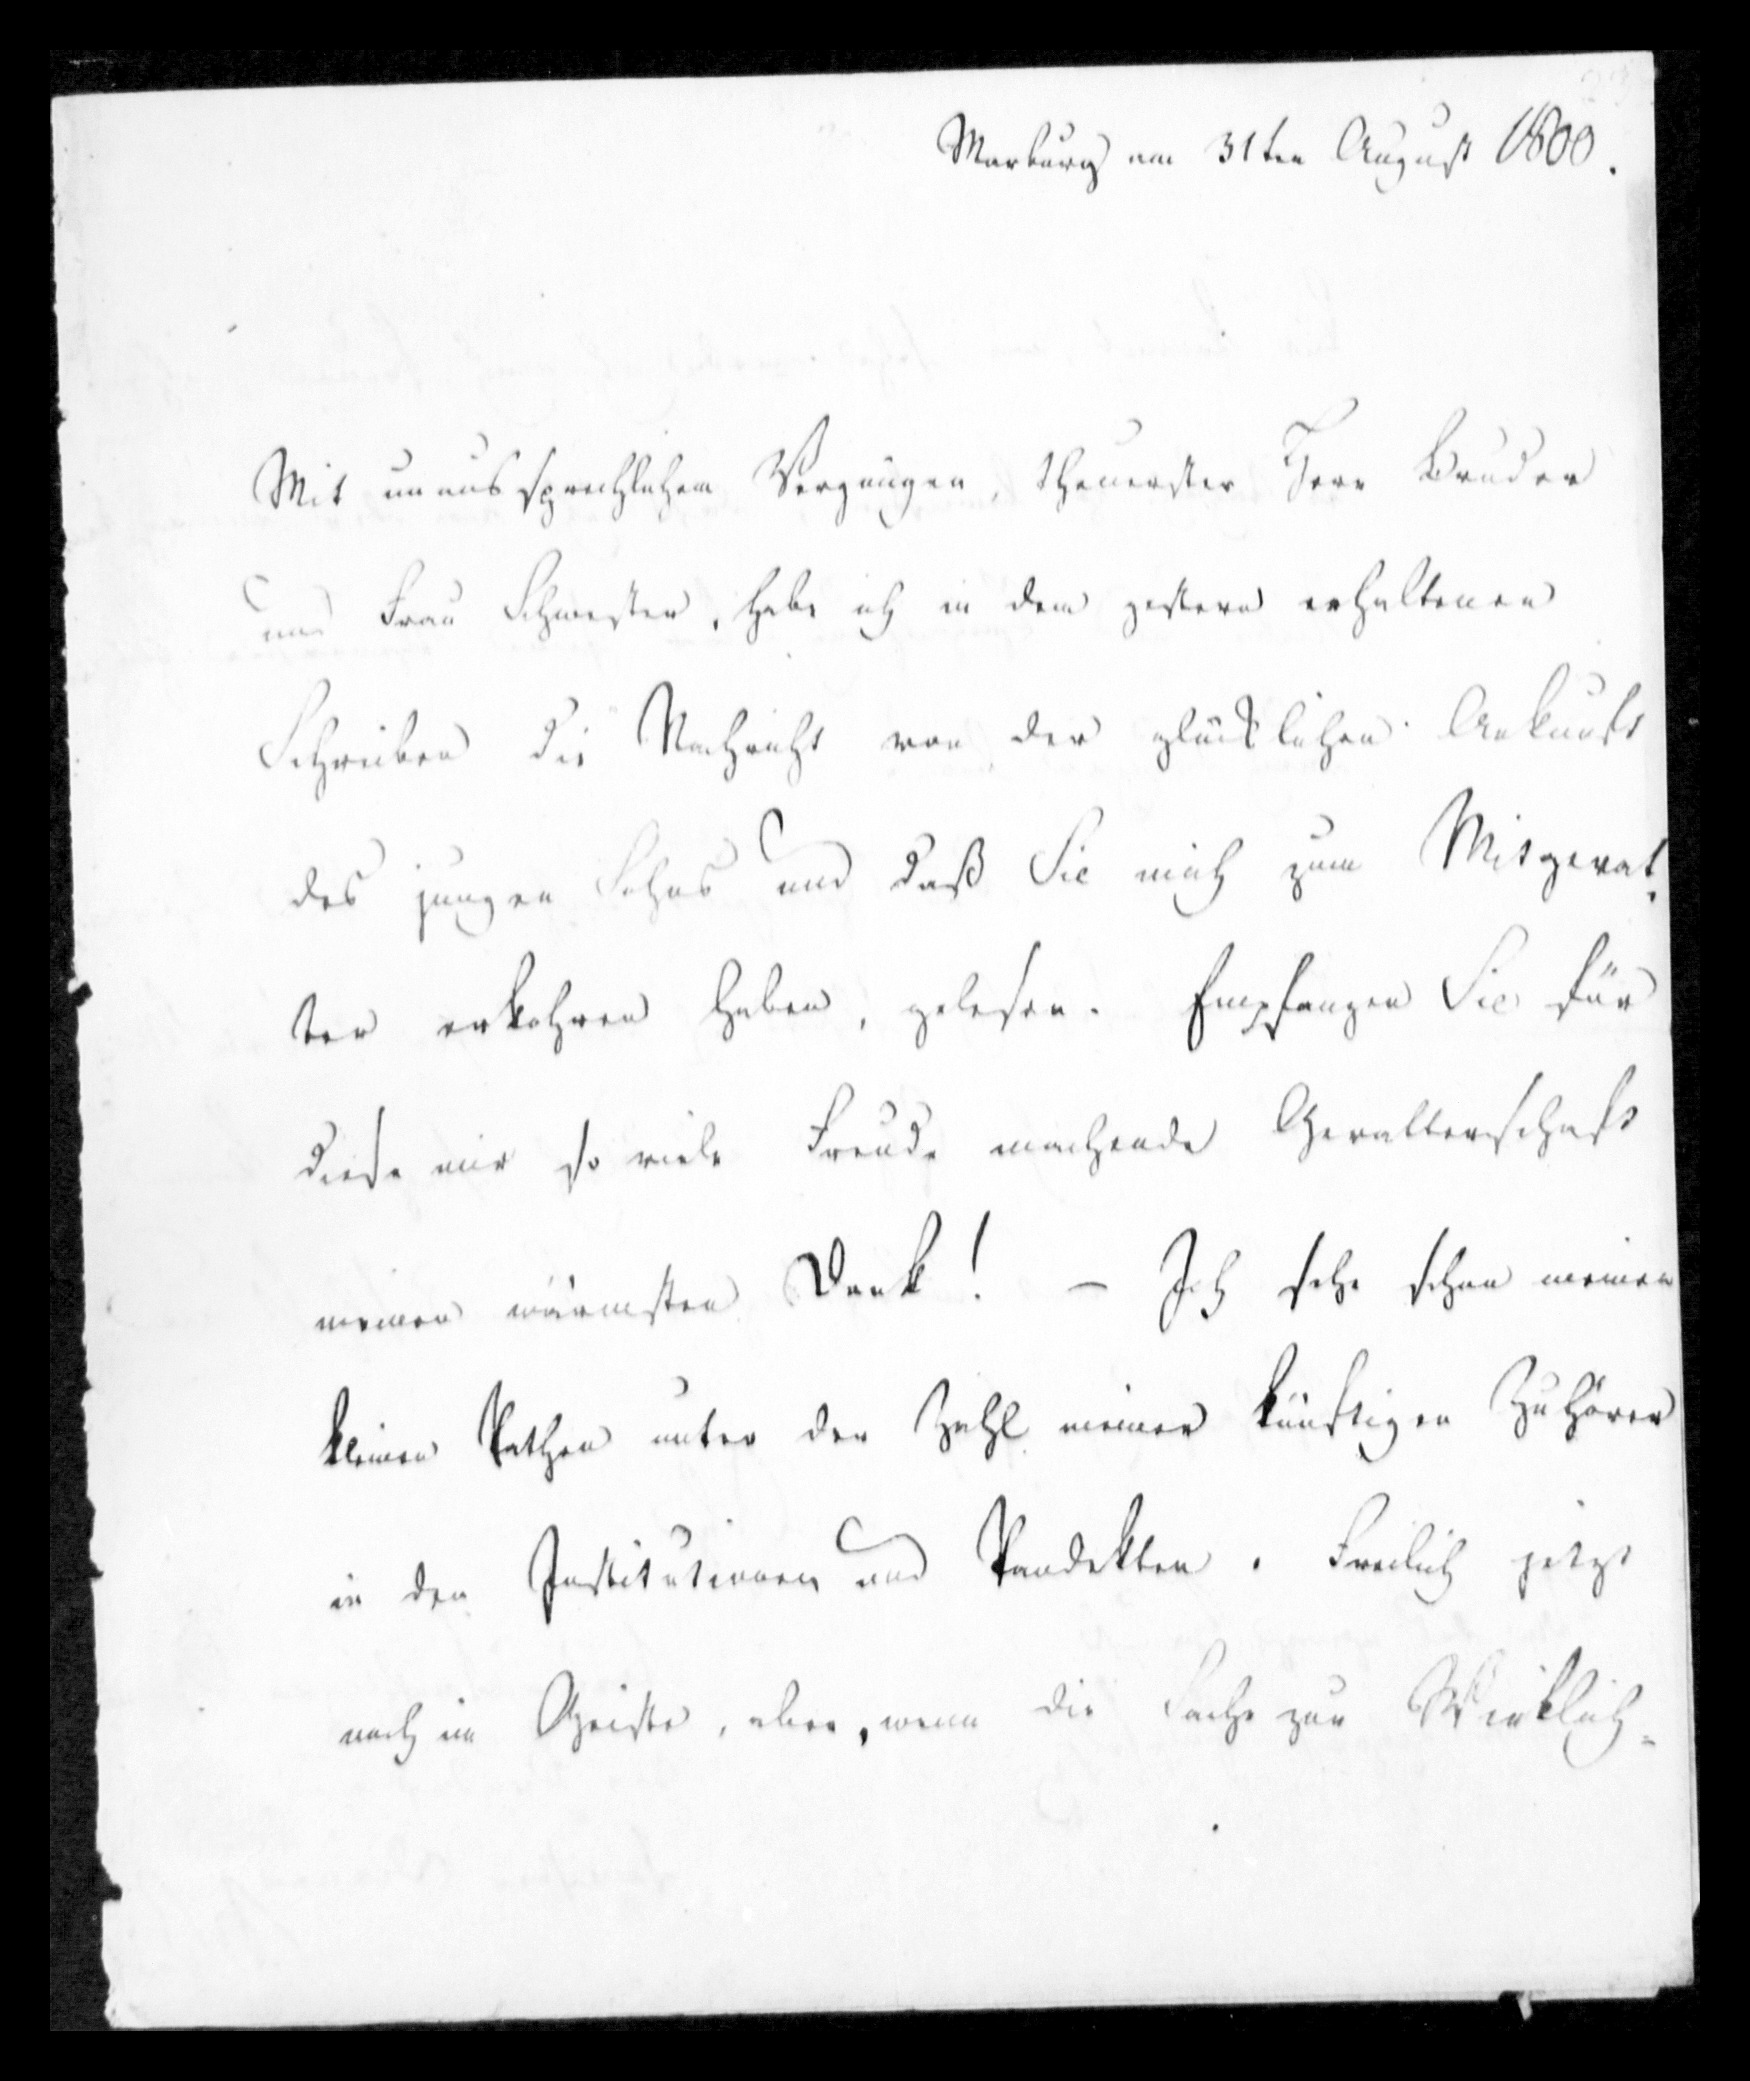 Marburg am 31ten August 1800.
Mit unaussprechlichem Vergnügen, theuerster Herr Bruder
und Frau Schwester, habe ich in dem gestern erhaltenen
Schreiben die Nachricht von der glücklichen Ankunft
des jungen Sohns und daß Sie mich zum Mitgevat-
ter erkohren haben, gelesen. Empfangen Sie für
diese mir so viele Freude machende Gevatterschaft
meinen wärmsten Dank! – Ich sehe schon meinen
kleinen Pathen unter der Zahl meiner künftigen Zuhörer
in den Institutionen und Pandekten. Freilich jetzt
noch im Geiste, aber, wenn die Sache zur Wirklich-